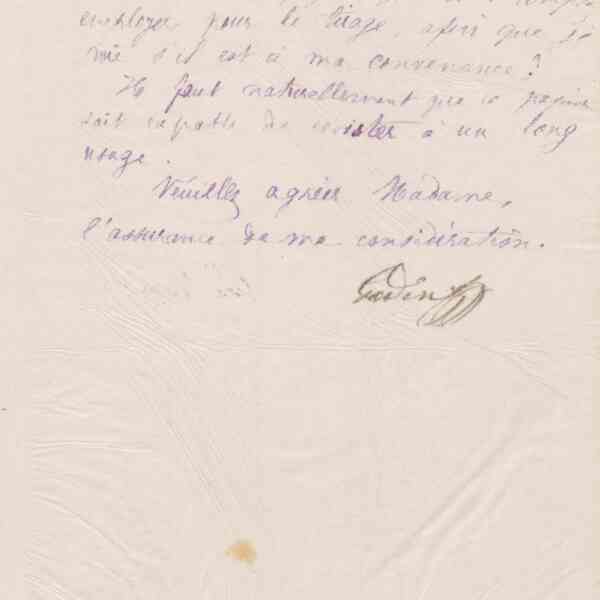 employer pour le tirage, afin que je
s'il est à ma convenance ?
Il faut naturellement que ce papier
soit capable de resister à un long
usage.
Veuillez agréer Madame,
l'assurance de ma considération.